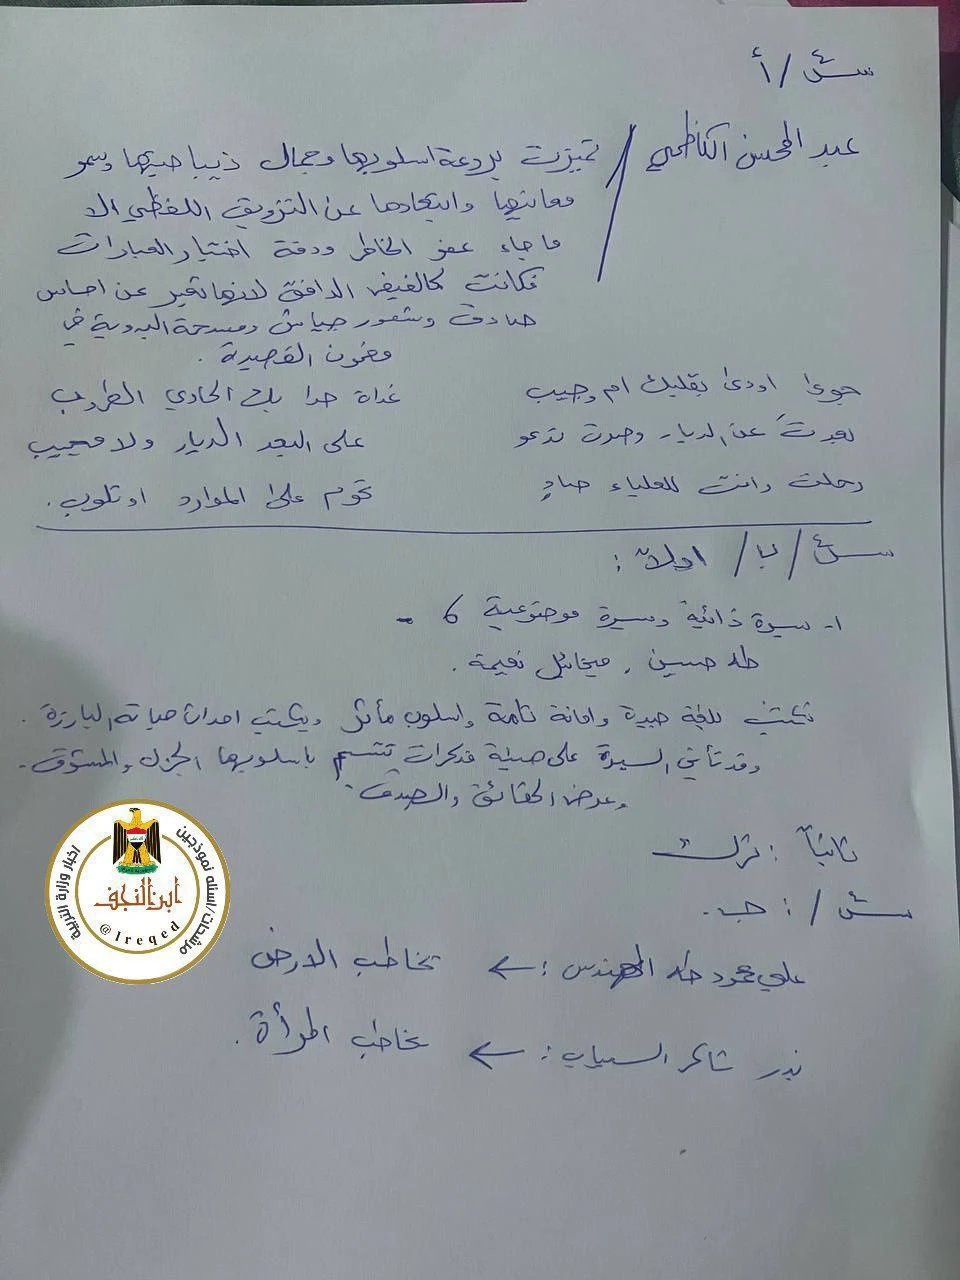 س٤ / أ
عبد المحسن الكاظمي / تميزت بروعة اسلوبها وجمال ديباجتها وسمو
معانيها وابتعادها عن التزويق اللفظي الا
ما جاء عفو الخاطر ودقة اختيار العبارات
فكانت كالفيض الدافق لانها تعبر عن احساس
صادق وشعور جياش ومسحة البدوية في
مضمون القصيدة .
جوىً اودى بقلبك ام وجيب غداة حدا بك الحادي الطروب
بعدتَ عن الديار وصوت تدعو على البعد الديار ولا مجيب
رحلت وانت للعلياء صادٍ تحوم على الموارد او تلوب .
س٤ / ب / اولاً :
١- سيرة ذاتية وسيرة موضوعية 6 -
طه حسين , ميخائيل نعيمة .
تكتب بلغة جيدة وامانة تامة واسلوب مأثر ويكتب احداث حياته البارزة .
وقد تأتي السيرة على صيغة مذكرات تتسم باسلوبها الجزل والمشوق -
وعرض الحقائق والصدق .
ثانياً : ترك
س / : جـ .
علي محمود طه المهندس : ← تخاطب الارض
بدر شاكر السياب : ← يخاطب المرأة .
اخبار وزارة التربية
مرشحات/اسئله نموذجين
ابن النجف
@Ireqed